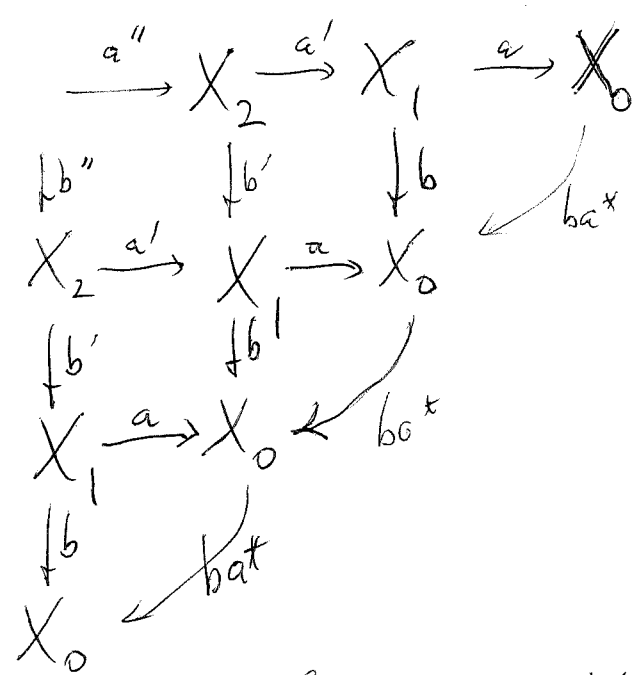 a" X₂ a' X₁ a X₀
b" b' b ba*
X₂ a' X₁ a X₀
b' b ba*
X₁ a X₀
b ba*
X₀